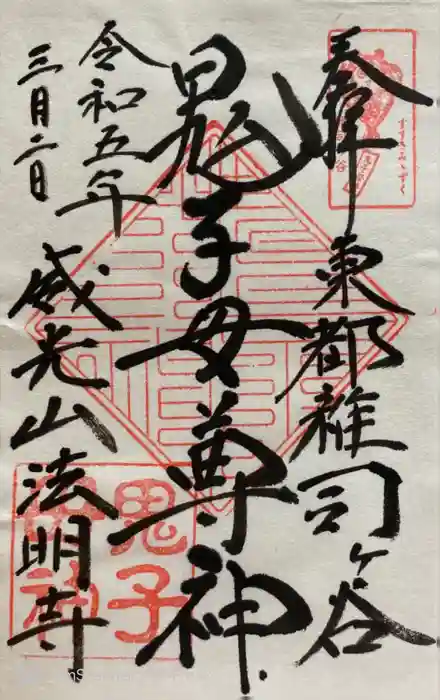 奉拝
東都雑司ヶ谷
鬼子母尊神
令和五年
三月二日
威光山法明寺
鬼子
母神